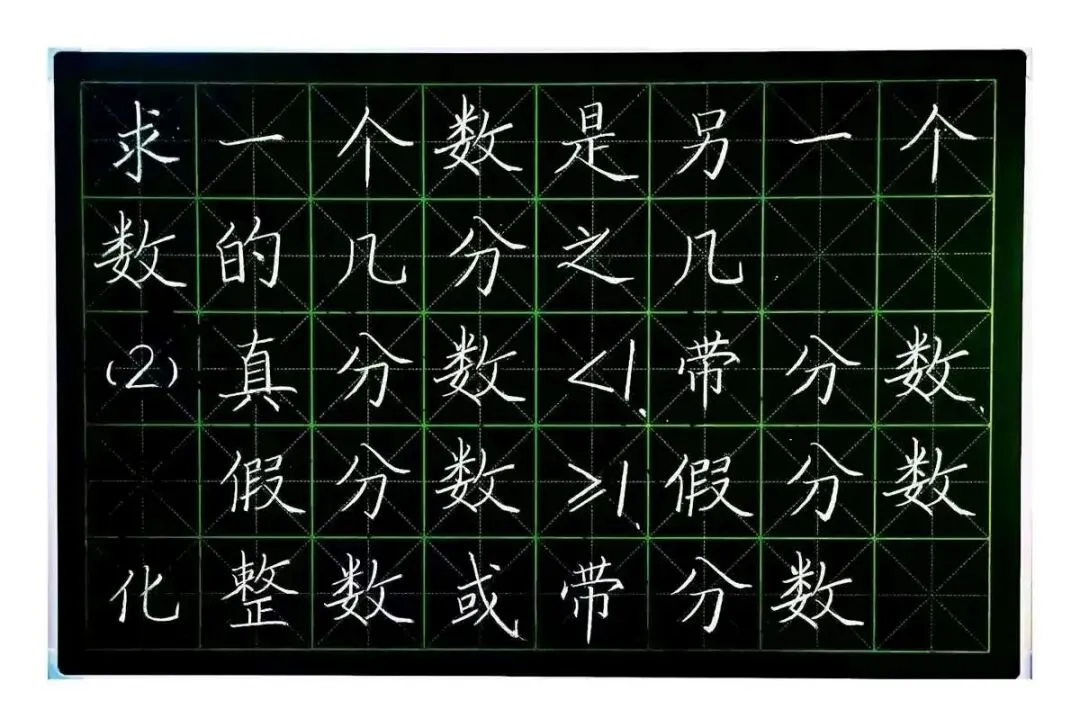 求一个数是另一个
数的几分之几
(2)真分数<1.带分数.
假分数≥1.假分数
化整数或带分数